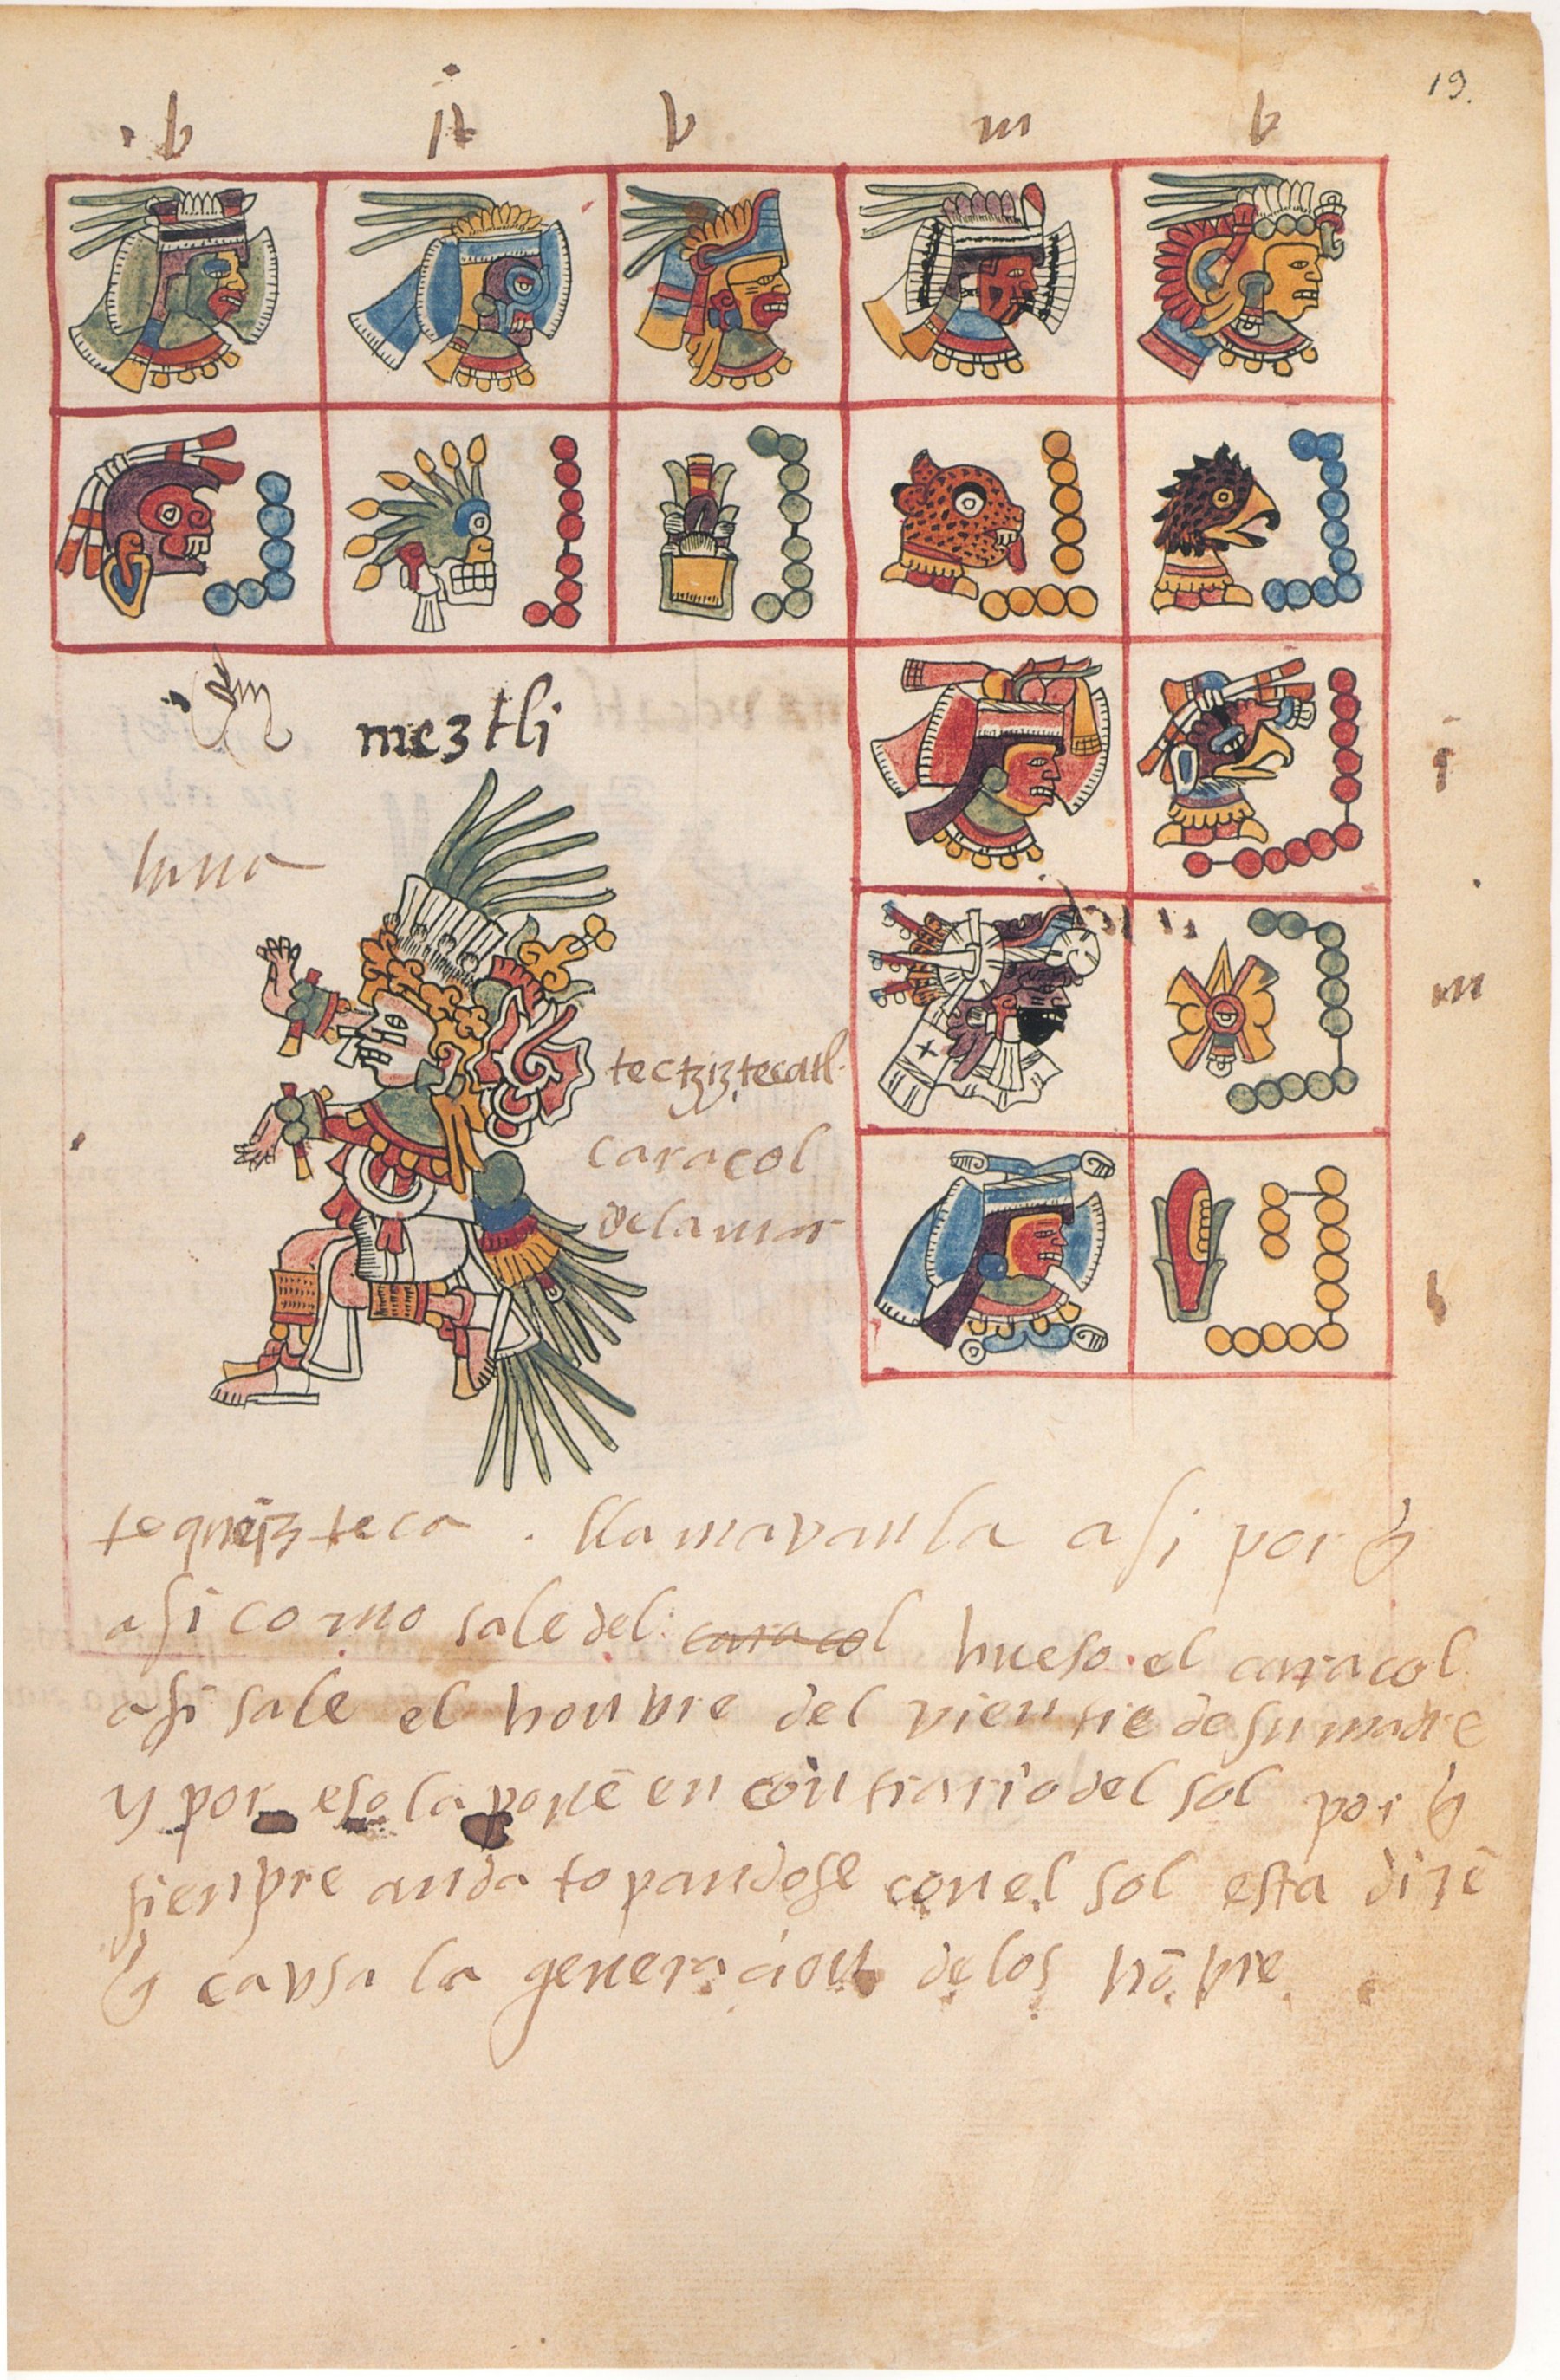 19.
b n b m b
meztli
luna
tectziztecatl.
caracol
de la mar
i
m
b
tequeiz teca . llamavanla asi por q̃
asi como sale del caracol hueso el caracol
asi sale el honbre del vientre de su madre
y por eso la ponẽ en contrario del sol por q̃
sienpre anda topandose con el sol esta dizẽ
q̃ cavsa la generacion de los hõbre